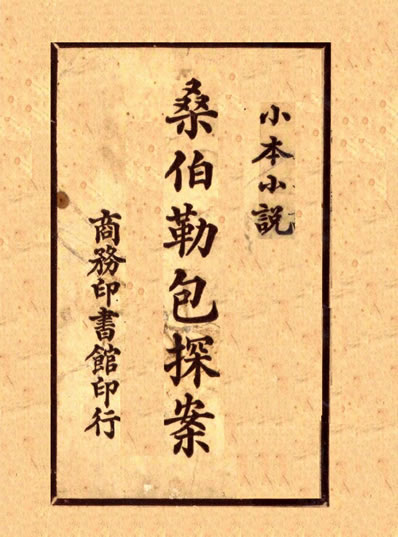 小本小説
桑伯勒包探案
商務印書館印行